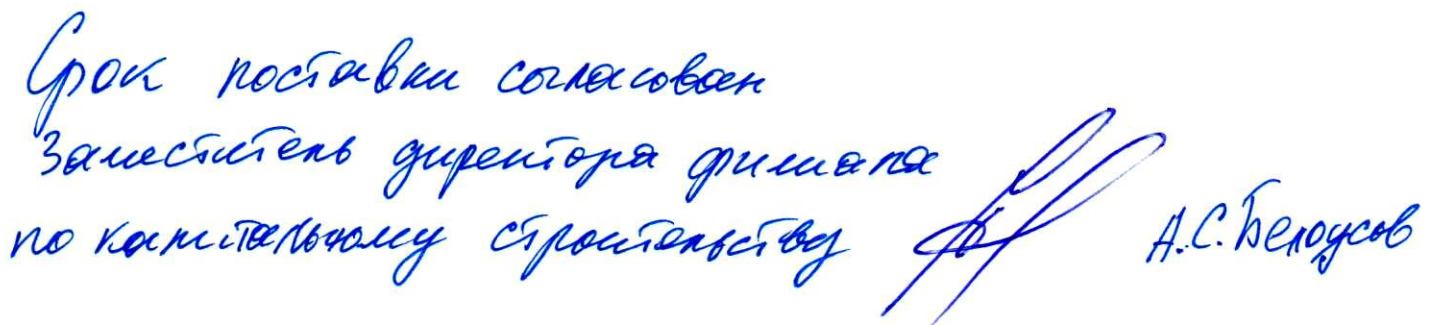 Срок поставки согласован
Заместитель директора филиала
по капитальному строительству А.С. Белоусов